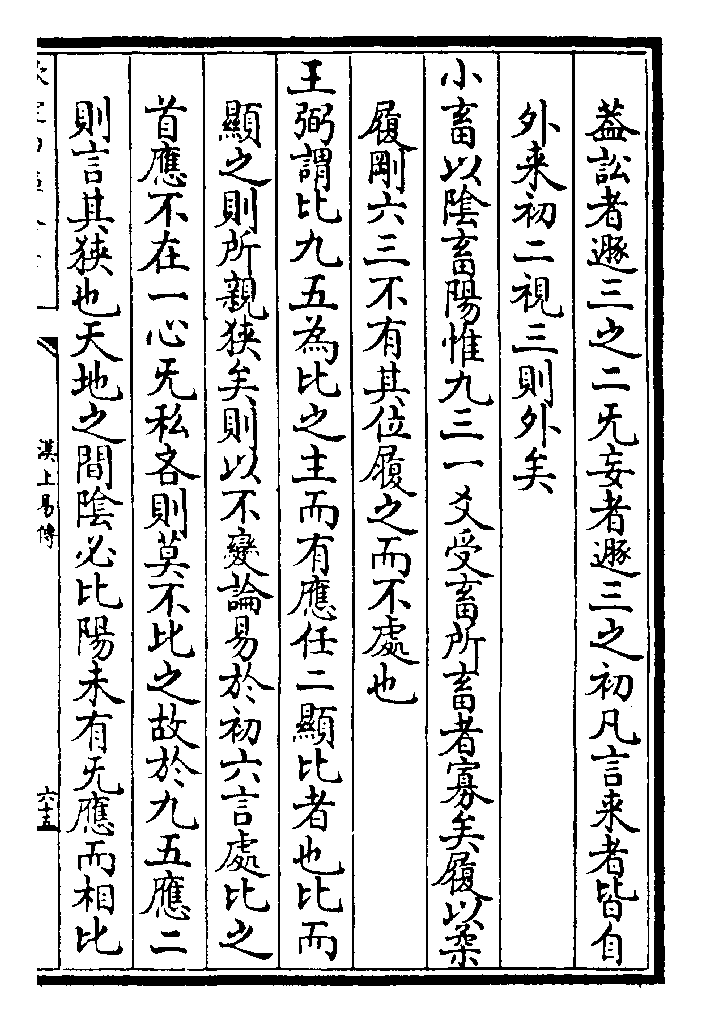 葢訟者遯三之二旡妄者遯三之初凡言来者皆自
外来初二視三則外矣
小畜以陰畜陽惟九三一爻受畜所畜者寡矣履以柔
履剛六三不有其位履之而不處也
王弼謂比九五為比之主而有應任二顯比者也比而
顯之則所親狹矣則以不變論易於初六言處比之
首應不在一心旡私吝則莫不比之故於九五應二
則言其狹也天地之間陰必比陽未有旡應而相比
漢上易傳
六十五